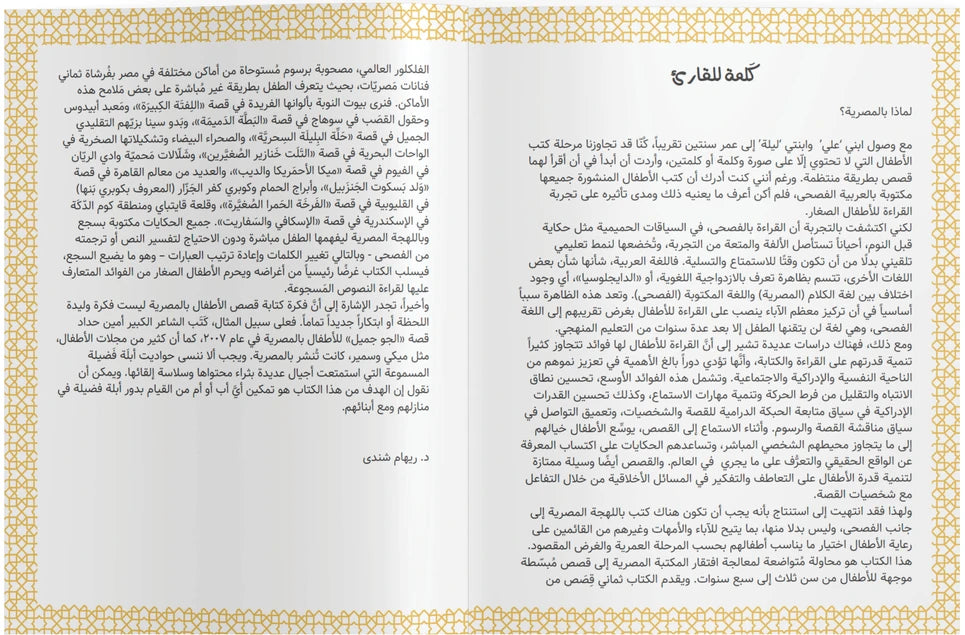 كَلمة للقارئ
لماذا بالمصرية؟
مع وصول ابني ’علي‘ وابنتي ’ليلة‘ إلى عمر سنتين تقريباً، كنّا قد تجاوزنا مرحلة كتب
الأطفال التي لا تحتوي إلّا على صورة وكلمة أو كلمتين، وأردت أن أبدأ في أن أقرأ لهما
قصص بطريقة منتظمة. ورغم أنني كنت أدرك أن كتب الأطفال المنشورة جميعها
مكتوبة بالعربية الفصحى، فلم أكن أعرف ما يعنيه ذلك ومدى تأثيره على تجربة
القراءة للأطفال الصغار.
لكني اكتشفت بالتجربة أن القراءة بالفصحى، في السياقات الحميمية مثل حكاية
قبل النوم، أحياناً تستأصل الألفة والمتعة من التجربة، وتُخضعها لنمط تعليمي
تلقيني بدلًا من أن تكون وقتًا للاستمتاع والتسلية. فاللغة العربية، شأنها شأن بعض
اللغات الأخرى، تتسم بظاهرة تعرف بالازدواجية اللغوية، أو «الدايجلوسيا»، أي وجود
اختلاف بين لغة الكلام (المصرية) واللغة المكتوبة (الفصحى). وتعد هذه الظاهرة سبباً
أساسياً في أن تركيز معظم الآباء ينصب على القراءة للأطفال بغرض تقريبهم إلى اللغة
الفصحى، وهي لغة لن يتقنها الطفل إلا بعد عدة سنوات من التعليم المنهجي.
ومع ذلك، فهناك دراسات عديدة تشير إلى أنَّ القراءة للأطفال لها فوائد تتجاوز كثيراً
تنمية قدرتهم على القراءة والكتابة، وأنَّها تؤدي دوراً بالغ الأهمية في تعزيز نموهم من
الناحية النفسية والإدراكية والاجتماعية. وتشمل هذه الفوائد الأوسع، تحسين نطاق
الانتباه والتقليل من فرط الحركة وتنمية مهارات الاستماع، وكذلك تحسين القدرات
الإدراكية في سياق متابعة الحبكة الدرامية للقصة والشخصيات، وتعميق التواصل في
سياق مناقشة القصة والرسوم. وأثناء الاستماع إلى القصص، يوسّع الأطفال خيالهم
إلى ما يتجاوز محيطهم الشخصي المباشر، وتساعدهم الحكايات على اكتساب المعرفة
عن الواقع الحقيقي والتعرُّف على ما يجري في العالم. والقصص أيضًا وسيلة ممتازة
لتنمية قدرة الأطفال على التعاطف والتفكير في المسائل الأخلاقية من خلال التفاعل
مع شخصيات القصة.
ولهذا فقد انتهيت إلى استنتاج بأنه يجب أن تكون هناك كتب باللهجة المصرية إلى
جانب الفصحى، وليس بدلا منها، بما يتيح للآباء والأمهات وغيرهم من القائمين على
رعاية الأطفال اختيار ما يناسب أطفالهم بحسب المرحلة العمرية والغرض المقصود.
هذا الكتاب هو محاولة مُتواضعة لمعالجة افتقار المكتبة المصرية إلى قصص مُبسّطة
موجهة للأطفال من سن ثلاث إلى سبع سنوات. ويقدم الكتاب ثماني قِصَص من
الفلكلور العالمي، مصحوبة برسوم مُستوحاة من أماكن مختلفة في مصر بفُرشاة ثماني
فنانات مَصريّات، بحيث يتعرف الطفل بطريقة غير مُباشرة على بعض مَلامح هذه
الأماكن. فنرى بيوت النوبة بألوانها الفريدة في قصة «اللِفتَة الكِبيرَة»، ومَعبد أبيدوس
وحقول القصَب في سوهاج في قصة «البَطَّة الدَميمَة»، وبَدو سينا بزيّهم التقليدي
الجميل في قصة «حَلَّة البِليلَة السِحريَّة»، والصحراء البيضاء وتشكيلاتها الصخرية في
الواحات البحرية في قصة «التَلَت خَنازير الصُغيَّرين»، وشَلّالات مَحميّة وادي الريّان
في الفيوم في قصة «ميكا الأحمَريكا والديب»، والعديد من معالم القاهرة في قصة
«وَلد بَسكوت الجَنزَبيل»، وأبراج الحمام وكوبري كفر الجَزّار (المعروف بكوبري بَنها)
في القليوبية في قصة «الفَرخَة الحَمرا الصُغيَّرة»، وقلعة قايتباي ومنطقة كوم الدّكَة
في الإسكندرية في قصة «الإسكافي والسَفاريت». جميع الحكايات مكتوبة بسجع
وباللهجة المصرية ليفهمها الطفل مباشرة ودون الاحتياج لتفسير النص أو ترجمته
من الفصحى - وبالتالي تغيير الكلمات وإعادة ترتيب العبارات – وهو ما يضيع السجع،
فيسلب الكتاب غرضًا رئيسياً من أغراضه ويحرم الأطفال الصغار من الفوائد المتعارف
عليها لقراءة النصوص المَسجوعة.
وأخيراً، تجدر الإشارة إلى أنَّ فكرة كتابة قصص الأطفال بالمصرية ليست فكرة وليدة
اللحظة أو ابتكاراً جديداً تماماً. فعلى سبيل المثال، كَتَب الشاعر الكبير أمين حداد
قصة «الجو جميل» للأطفال بالمصرية في عام ٢٠٠٧، كما أن كثير من مجلات الأطفال،
مثل ميكي وسمير، كانت تُنشر بالمصرية. ويجب ألا ننسى حواديت أبلَة فَضيلة
المسموعة التي استمتعت أجيال عديدة بثراء محتواها وسلاسة إلقائها. ويمكن أن
نقول إن الهدف من هذا الكتاب هو تمكين أيَّ أب أو أم من القيام بدور أبلة فضيلة في
منازلهم ومع أبنائهم.
د. ريهام شندى